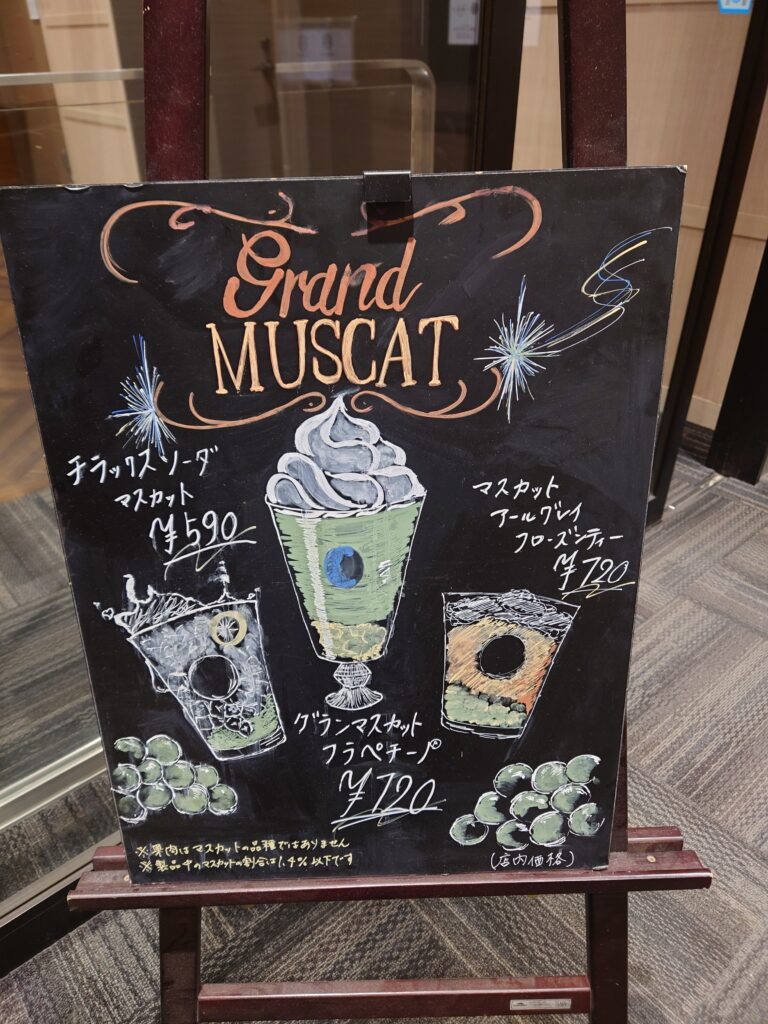 Grand
MUSCAT
チラックスソーダ
マスカット
¥590
マスカット
アールグレイ
フローズンティー
¥720
グランマスカット
フラペチーノ®
¥720
※果肉はマスカットの品種ではありません
※製品中のマスカットの割合は1.4%以下です
(店内価格)